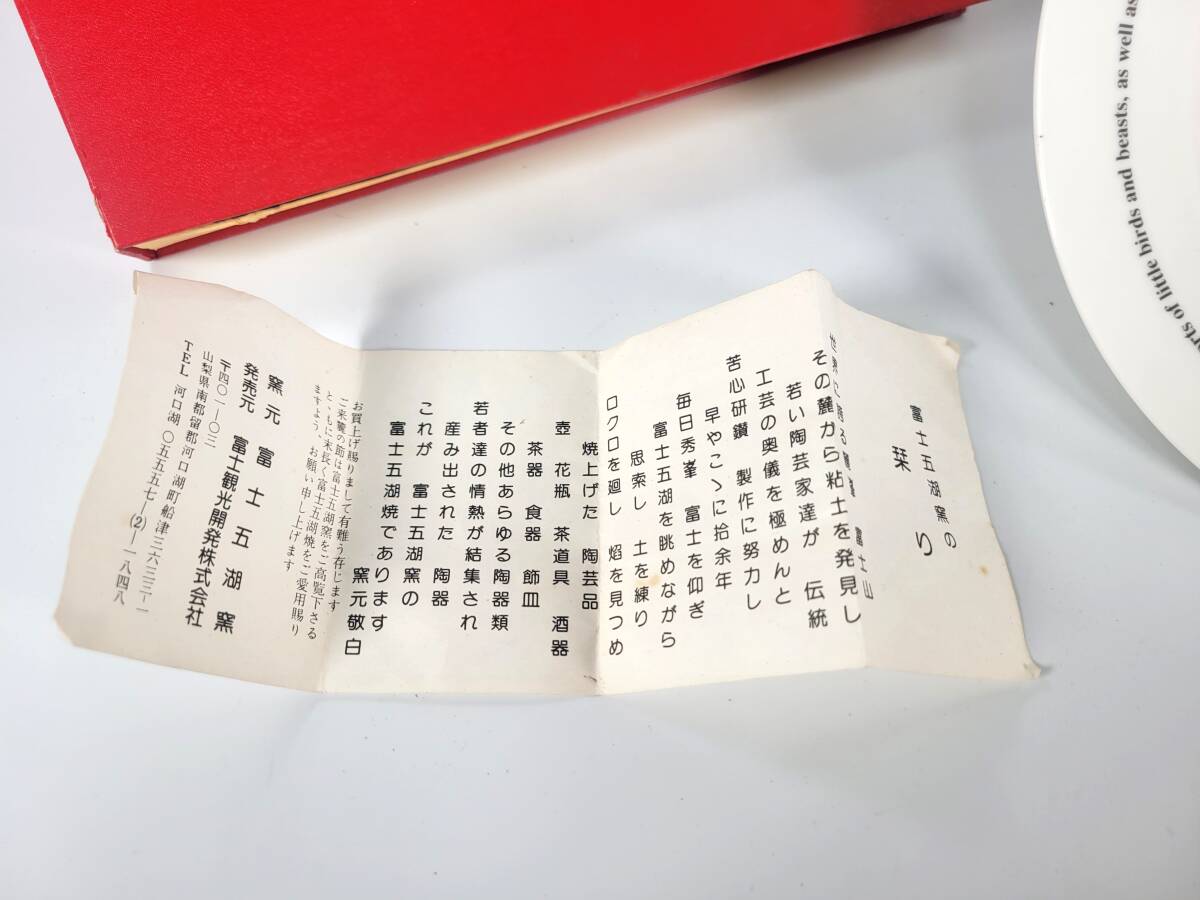 富士五湖窯の
栞り
世界に誇る霊峰 富士山
その麓から粘土を発見し
若い陶芸家達が 伝統
工芸の奥儀を極めんと
苦心研鑽 製作に努力し
早やこゝに拾余年
毎日秀峯 富士を仰ぎ
富士五湖を眺めながら
思索し 土を練り
ロクロを廻し 焰を見つめ
焼上げた 陶芸品
壺 花瓶 茶道具 酒器
茶器 食器 飾皿
その他あらゆる陶器類
若者達の情熱が結集され
産み出された 陶器
これが 富士五湖窯の
富士五湖焼であります
窯元敬白
お買上げ賜りまして有難う存じます
ご来麓の節は富士五湖窯をご高覧下さる
と、もに末長く富士五湖焼をご愛用賜り
ますよう、お願い申し上げます
窯元 富士五湖窯
発売元 富士観光開発株式会社
〒四〇一—〇三
山梨県南都留郡河口湖町船津三六三三—一
TEL 河口湖 〇五五五七—(2)—一八四八
rts of little birds and beasts, as well as